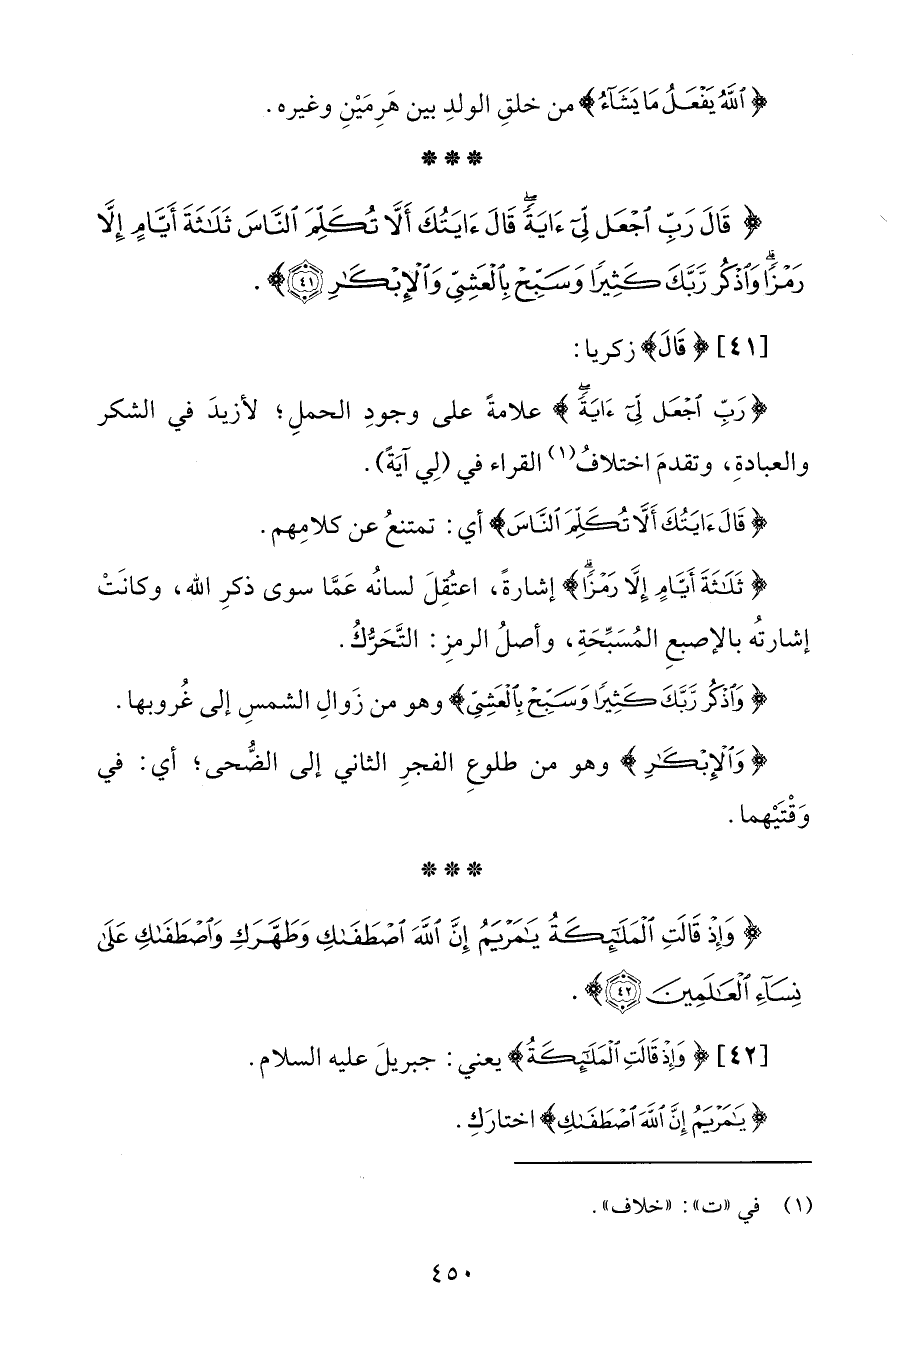 ﴿ ٱللَّهُ يَفْعَلُ مَا يَشَآءُ ﴾ من خلقِ الولدِ بين هَرِمَيْنِ وغيره .
***
﴿ قَالَ رَبِّ ٱجْعَل لِّىٓ ءَايَةً ۖ قَالَ ءَايَتُكَ أَلَّا تُكَلِّمَ ٱلنَّاسَ ثَلَـٰثَةَ أَيَّامٍ إِلَّا
رَمْزًا ۗ وَٱذْكُر رَّبَّكَ كَثِيرًا وَسَبِّحْ بِٱلْعَشِىِّ وَٱلْإِبْكَـٰرِ ٤١ ﴾ .
[٤١] ﴿ قَالَ ﴾ زكريا :
﴿ رَبِّ ٱجْعَل لِّىٓ ءَايَةً ۖ ﴾ علامةً على وجودِ الحملِ ؛ لأزيدَ في الشكر
والعبادةِ ، وتقدمَ اختلافُ (١) القراء في (لِي آيَةً) .
﴿ قَالَ ءَايَتُكَ أَلَّا تُكَلِّمَ ٱلنَّاسَ ﴾ أي : تمتنعُ عن كلامِهم .
﴿ ثَلَـٰثَةَ أَيَّامٍ إِلَّا رَمْزًا ۗ ﴾ إشارةً ، اعتُقِلَ لسانُه عَمَّا سوى ذكرِ الله ، وكانَتْ
إشارتُه بالإصبعِ المُسَبِّحَةِ ، وأصلُ الرمزِ : التَّحَرُّكُ .
﴿ وَٱذْكُر رَّبَّكَ كَثِيرًا وَسَبِّحْ بِٱلْعَشِىِّ ﴾ وهو من زَوالِ الشمسِ إلى غُروبها .
﴿ وَٱلْإِبْكَـٰرِ ﴾ وهو من طلوعِ الفجرِ الثاني إلى الضُّحى ؛ أي : في
وَقْتَيْهِما .
***
﴿ وَإِذْ قَالَتِ ٱلْمَلَـٰٓئِكَةُ يَـٰمَرْيَمُ إِنَّ ٱللَّهَ ٱصْطَفَىٰكِ وَطَهَّرَكِ وَٱصْطَفَىٰكِ عَلَىٰ
نِسَآءِ ٱلْعَـٰلَمِينَ ٤٢ ﴾ .
[٤٢] ﴿ وَإِذْ قَالَتِ ٱلْمَلَـٰٓئِكَةُ ﴾ يعني : جبريلَ عليه السلام .
﴿ يَـٰمَرْيَمُ إِنَّ ٱللَّهَ ٱصْطَفَىٰكِ ﴾ اختارَكِ .
(١) في «ت» : «خلاف» .
٤٥٠